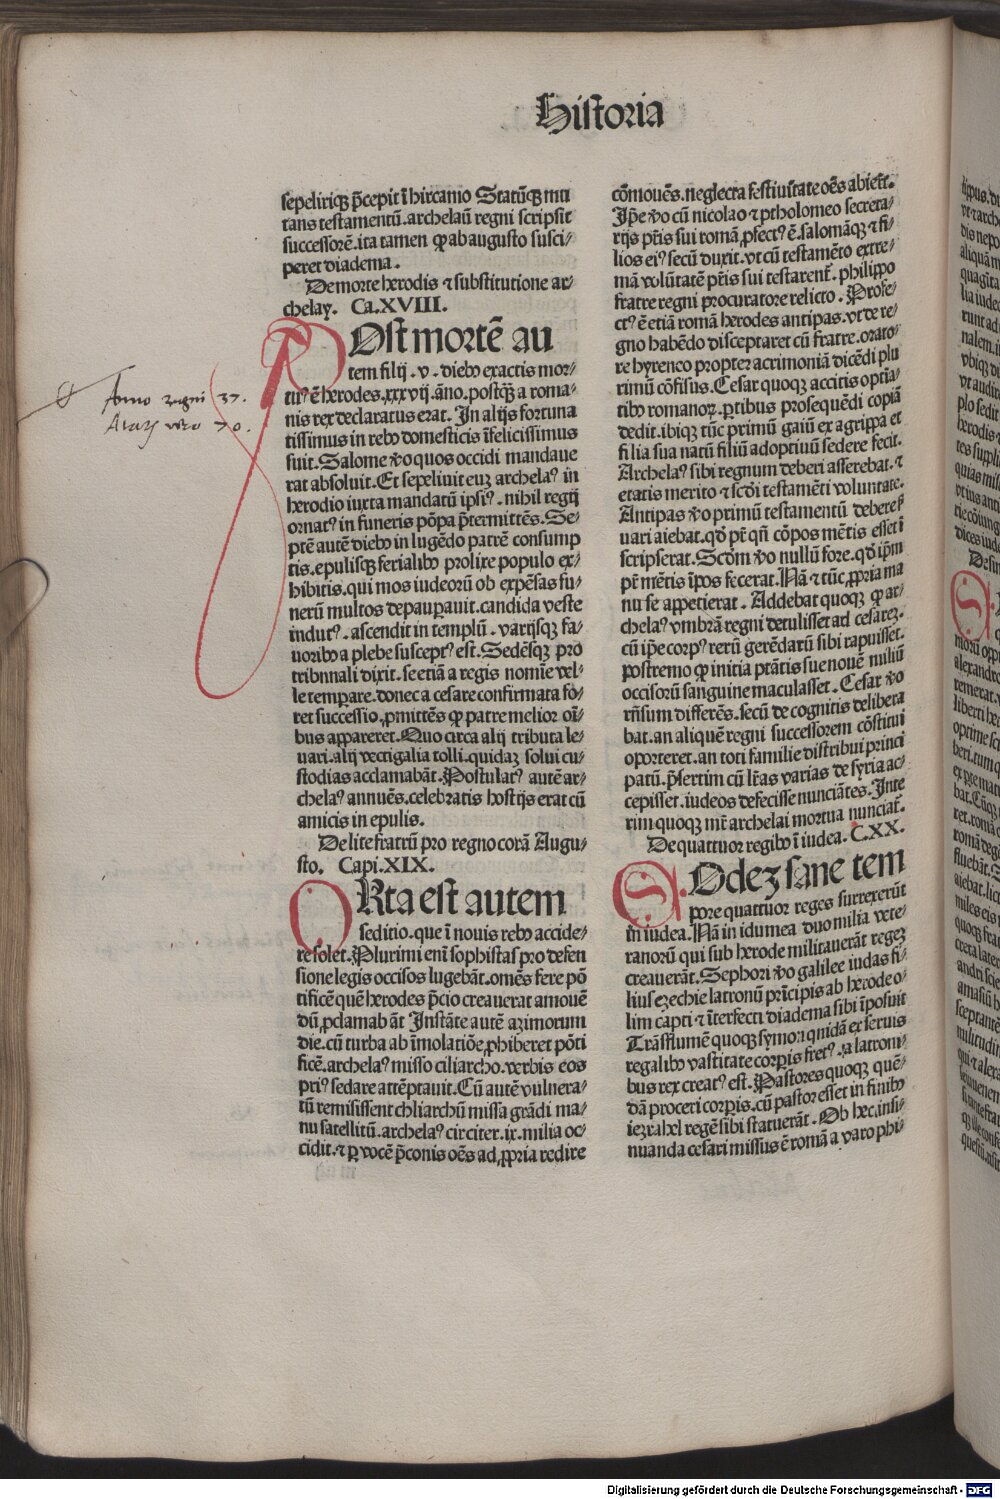 Historia
sepeliriqꝫ p̄cepit ī hircanio Statūqꝫ mu
tans testamentū. archelaū regni scripsit
successorē. ita tamen ꝙ ab augusto susci⸗
peret diadema.
De morte herodis ⁊ substitutione ar⸗
chelaꝝ. Ca. XVIII.
POst mortē au
tem filij. v. dieb⁹ exactis mor⸗
tu⁹ ē herodes. xxxvij. āno. postqꝫ̄ a roma⸗
nis rex declaratus erat. In alijs fortuna
tissimus in reb⁹ domesticis īfelicissimus
fuit. Salome v̄o quos occidi mandaue
rat absoluit. Et sepeliuit euꝫ archela⁹ in
herodio iuxta mandatū ipsi⁹. nihil regij
ornat⁹ in funeris pōpa p̄termittēs. Se⸗
ptē autē dieb⁹ in lugēdo patrē consump
tis. epulisqꝫ ferialib⁹ prolixe populo ex⸗
hibitis. qui mos iudeorū ob expēsas fu⸗
nerū multos depauꝑauit. candida veste
indut⁹. ascendit in templū. varijsqꝫ fa⸗
uorib⁹ a plebe suscept⁹ est. Sedēsqꝫ pro
tribunali dixit. se etiā a regis nomīe vel⸗
le temꝑare. donec a cesare confirmata fo⸗
ret successio. ꝓmittēs ꝙ patre melior oī⸗
bus appareret. Quo circa alij tributa le⸗
uari. alij vectigalia tolli. quidaꝫ solui cu⸗
stodias acclamabāt. Postulat⁹ autē ar⸗
chela⁹ annuēs. celebratis hostijs erat cū
amicis in epulis.
De lite fratrū pro regno corā Augu⸗
sto. Capi. XIX.
ORta est autem
seditio. que ī nouis reb⁹ accide⸗
re solet. Plurimi enī sophistas pro defen
sione legis occisos lugebāt. omēs fere pō
tificē quē herodes p̄cio creauerat amouē
dū ꝓclamabāt Instāte autē azimorum
die. cū turba ab īmolatiōe ꝓhiberet pōti
ficē. archela⁹ misso ciliarcho. verbis eos
pri⁹ sedare attēptauit. Cū autē vulnera⸗
tū remisissent chliarchū missa grādi ma⸗
nu satellitū. archela⁹ circiter. ix. milia oc⸗
cidit. ⁊ ꝑ vocē p̄conis oēs ad ꝓpria redire
cōmouēs. neglecta festiuitate oēs abiert̄.
Ip̄e v̄o cū nicolao ⁊ ptholomeo secreta⸗
rijs pr̄is sui romā ꝓfect⁹ ē. salomāqꝫ ⁊ fi⸗
lios ei⁹ secū duxit. vt cū testamēto extre⸗
mā volūtatē pr̄is sui testarent̄. philippo
fratre regni procuratore relicto. Profe⸗
ct⁹ ē etiā romā herodes antipas. vt de re⸗
gno habēdo disceptaret cū fratre. orato⸗
re hyreneo propter acrimoniā dicēdi plu
rimū cōfisus. Cesar quoqꝫ accitis optīa⸗
tib⁹ romanoꝝ. ꝑtibus prosequēdi copiā
dedit. ibiqꝫ tūc primū gaiū ex agrippa et
filia sua natū filiū adoptiuū sedere fecit.
Archela⁹ sibi regnum deberi asserebat. ⁊
etatis merito ⁊ sc̄di testamēti voluntate.
Antipas v̄o primū testamentū debere ẜ
uari aiebat. qd̄ pr̄ qn̄ cōpos mētis esset ī
scripserat. Scd̄m v̄o nullū fore. qd̄ ip̄m
pr̄ mētis īpos fecerat. Nā ⁊ tūc ꝓpria ma
nu se appetierat. Addebat quoqꝫ ꝙ ar⸗
chela⁹ vmbrā regni detulisset ad cesareꝫ.
cū ip̄e corp⁹ rerū gerēdarū sibi rapuisset.
postremo ꝙ initia ptātis sue nouē miliū
occisorū sanguine maculasset. Cesar v̄o
rn̄sum differēs. secū de cognitis delibera
bat. an aliquē regni successorem cōstitui
oporteret. an toti familie distribui princi
patū. p̄sertim cū lr̄as varias de syria ac⸗
cepisset. iudeos defecisse nunciātes. Inte
rim quoqꝫ mr̄ archelai mortua nunciat̄.
De quattuor regib⁹ ī iudea. C. XX.
SOdeꝫ sane tem
pore quattuor reges surrexerūt
in iudea. Nā in idumea duo milia vete⸗
ranorū qui sub herode militauerāt regeꝫ
creauerāt. Sephori v̄o galilee iudas fi⸗
lius ezechie latronū prīcipis ab herode o⸗
lim capti ⁊ īterfecti diadema sibi īposuit
Trāsflumē quoqꝫ symoⁿ quidā ex seruis
regalib⁹ vastitate corꝑis fret⁹. a latroni⸗
bus rex creat⁹ est. Pastores quoqꝫ quē⸗
dā proceri corꝑis. cū pastor esset in finib⁹
iezrahel regē sibi statuerāt. Ob hec. insi⸗
nuanda cesari missus ē romā a varo phi⸗
Anno regni 37.
Ætatis vero 70.
Digitalisierung gefördert durch die Deutsche Forschungsgemeinschaft - DFG